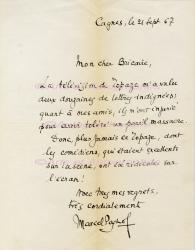 Cagnes, le 21 Sept 67
Mon cher Bricaire,
La télévision de Topaze m'a valu
deux douzaines de lettres indignées;
quant à mes amis, ils m'ont injurié
pour avoir toléré un pareil massacre.
Donc, plus jamais de Topaze, dont
les comédiens, qui étaient excellents
sur la scène, ont été ridicules sur
l'écran!
Avec tous mes regrets,
très cordialement
Marcel Pagnol